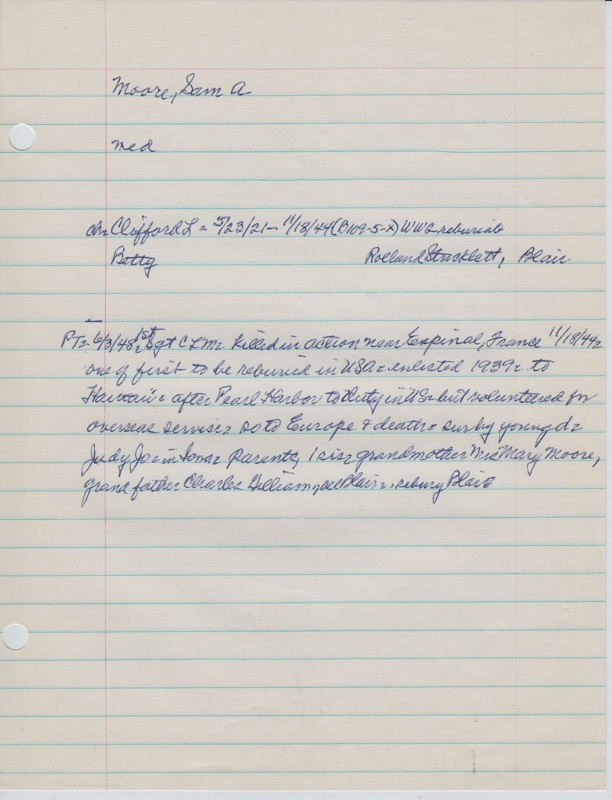 Moore, Sam A
med
ch= Clifford L = 5/23/21 - 11/18/44 (B109-5-7) WW2 reburial
Betty Rolland Stricklett, Blair
PT= 6/3/48 = 1st Sgt C L M = Killed in action near Espinal, France 11/18/44 =
one of first to be reburied in USA = enlisted 1939 = to
Hawaii = after Pearl Harbor to duty in US = but volunteered for
overseas service = so to Europe & death = sur by young d =
Judy Jo = in Iowa = parents, 1 sis = grandmother Mrs Mary Moore,
grandfather Charles Gilliam, all Blair = rebury Blair